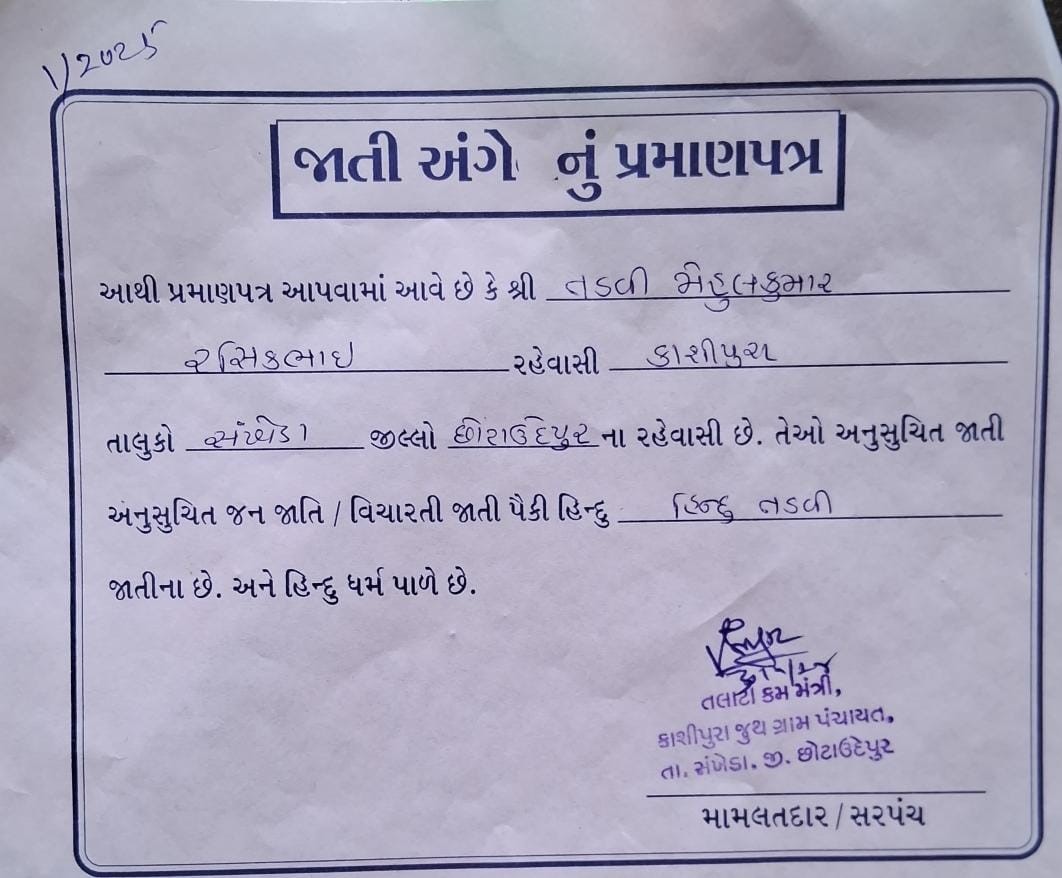 1/2025
જાતી અંગે નું પ્રમાણપત્ર
આથી પ્રમાણપત્ર આપવામાં આવે છે કે શ્રી તડવી મેહુલકુમાર
રસિકભાઇ રહેવાસી કાશીપુરા
તાલુકો સંખેડા જીલ્લો છોટાઉદેપુર ના રહેવાસી છે. તેઓ અનુસુચિત જાતી
અનુસુચિત જન જાતિ / વિચારતી જાતી પૈકી હિન્દુ હિન્દુ તડવી
જાતીના છે. અને હિન્દુ ધર્મ પાળે છે.
તલાટી કમ મંત્રી,
કાશીપુરા જુથ ગ્રામ પંચાયત,
તા. સંખેડા. જી. છોટાઉદેપુર
મામલતદાર / સરપંચ